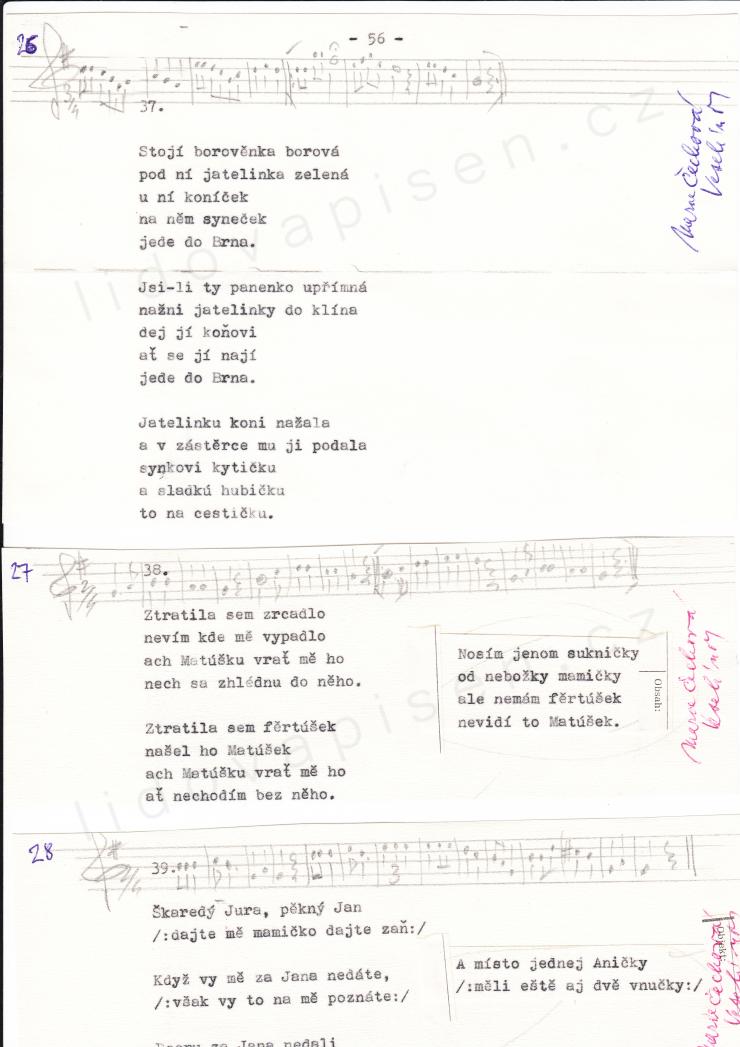 26
- 56 -
37.
Marie Čechová
Veselí n/M
Stojí borověnka borová
pod ní jatelinka zelená
u ní koníček
na něm syneček
jede do Brna.
Jsi-li ty panenko upřímná
nažni jatelinky do klína
dej jí koňovi
ať se jí nají
jede do Brna.
Jatelinku koni nažala
a v zástěrce mu ji podala
synkovi kytičku
a sladkú hubičku
to na cestičku.
lidovapisen.cz
27
38.
Marie Čechová
Veselí n/M
Ztratila sem zrcadlo
nevím kde mě vypadlo
ach Matúšku vrať mě ho
nech sa zhlédnu do něho.
Ztratila sem fěrtúšek
našel ho Matúšek
ach Matúšku vrať mě ho
ať nechodím bez něho.
Nosím jenom sukničky
od nebožky mamičky
ale nemám fěrtúšek
nevidí to Matúšek.
Obsah:
lidovapisen.cz
28
39.
3
Škaredý Jura, pěkný Jan
/:dajte mě mamičko dajte zaň:/
Když vy mě za Jana nedáte,
/:však vy to na mě poznáte:/
za Jana nedali
A místo jednej Aničky
/:měli eště aj dvě vnučky:/
Marie Čechová